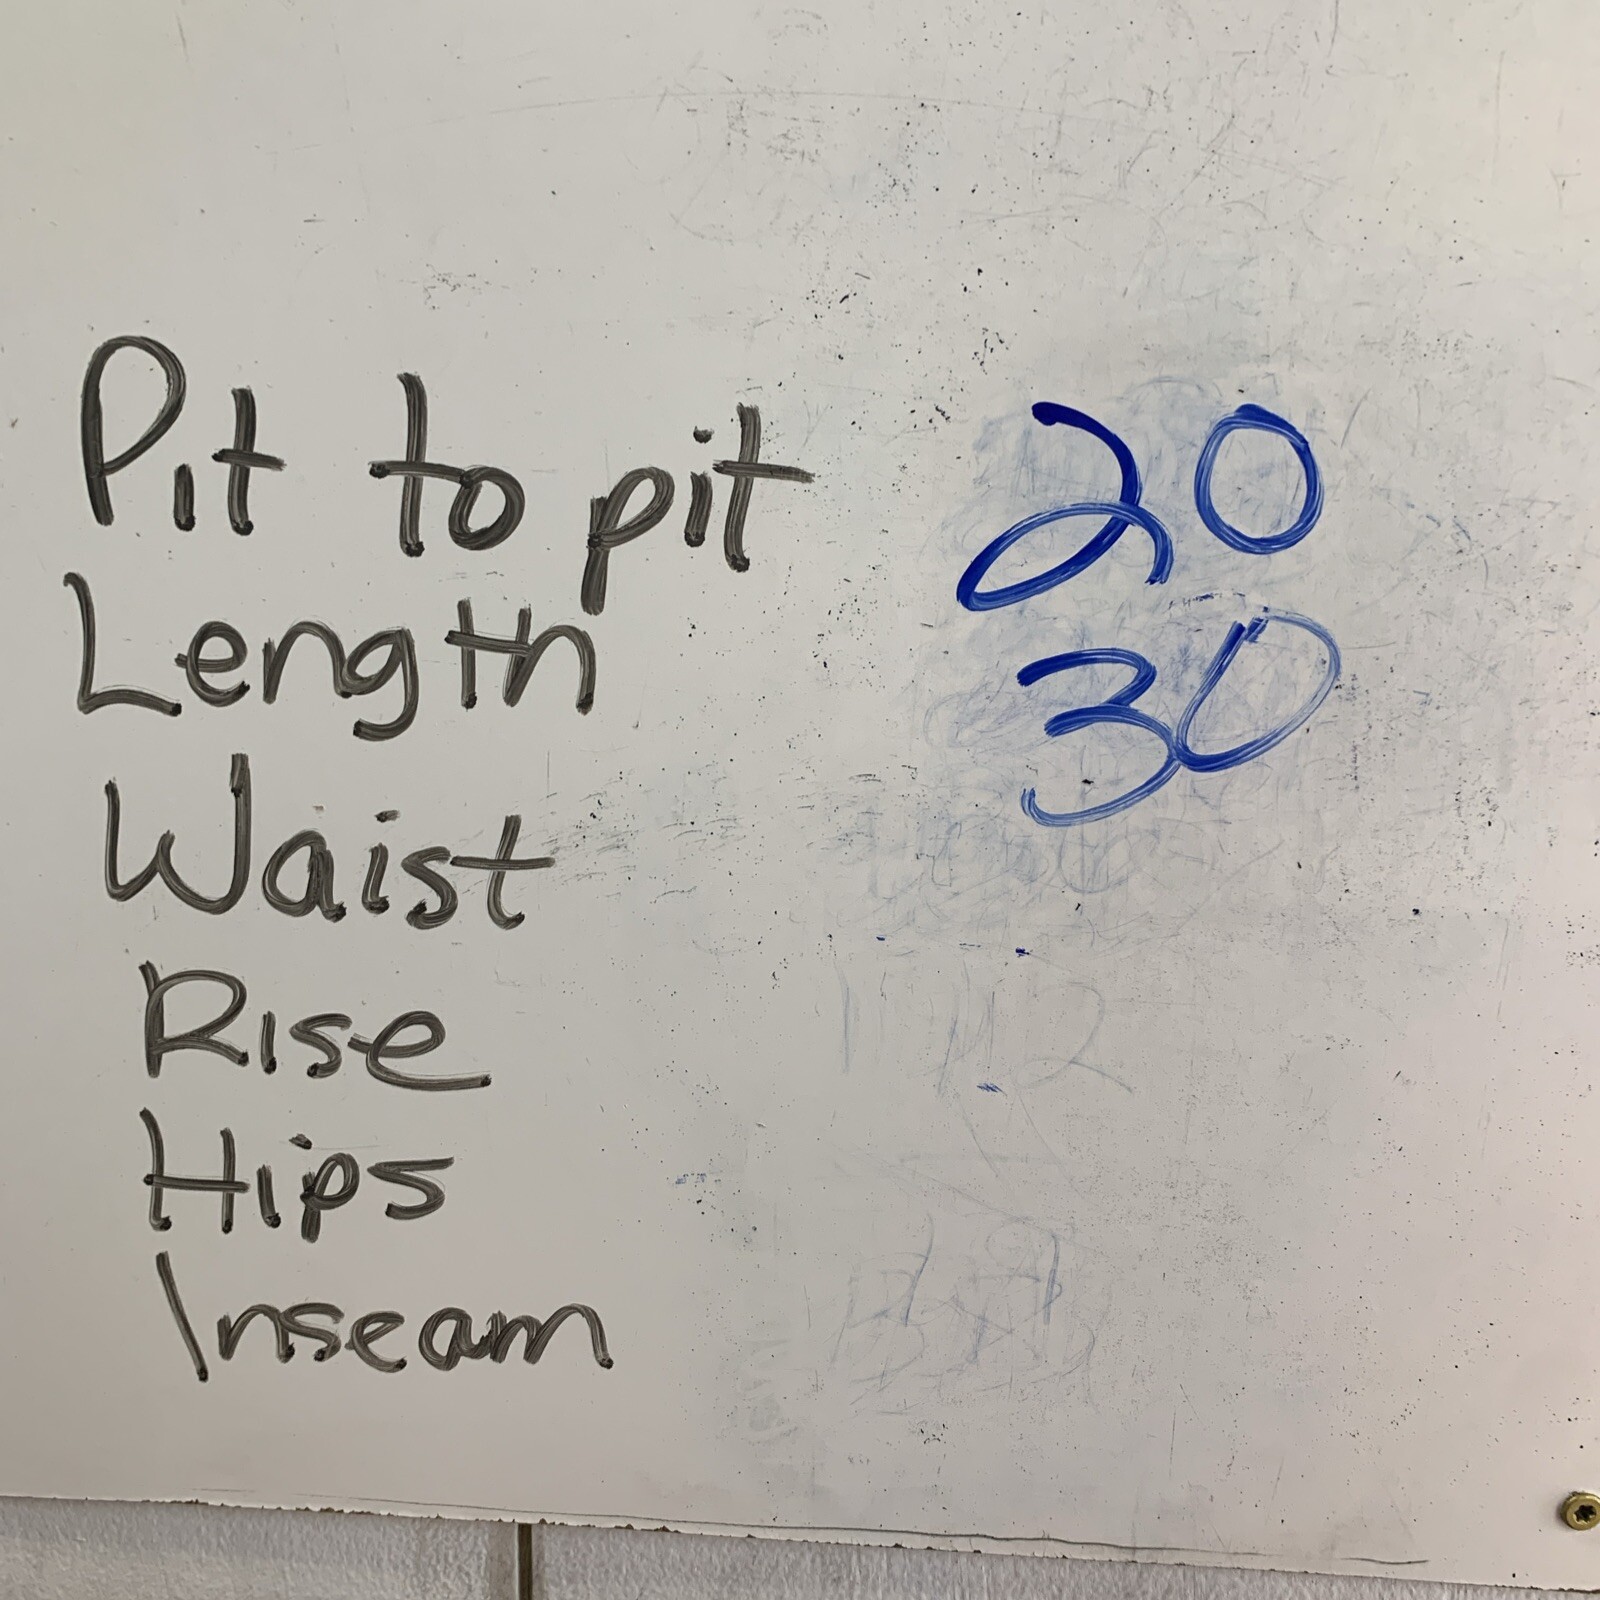 Pit to pit 20
Length 30
Waist
Rise
Hips
Inseam